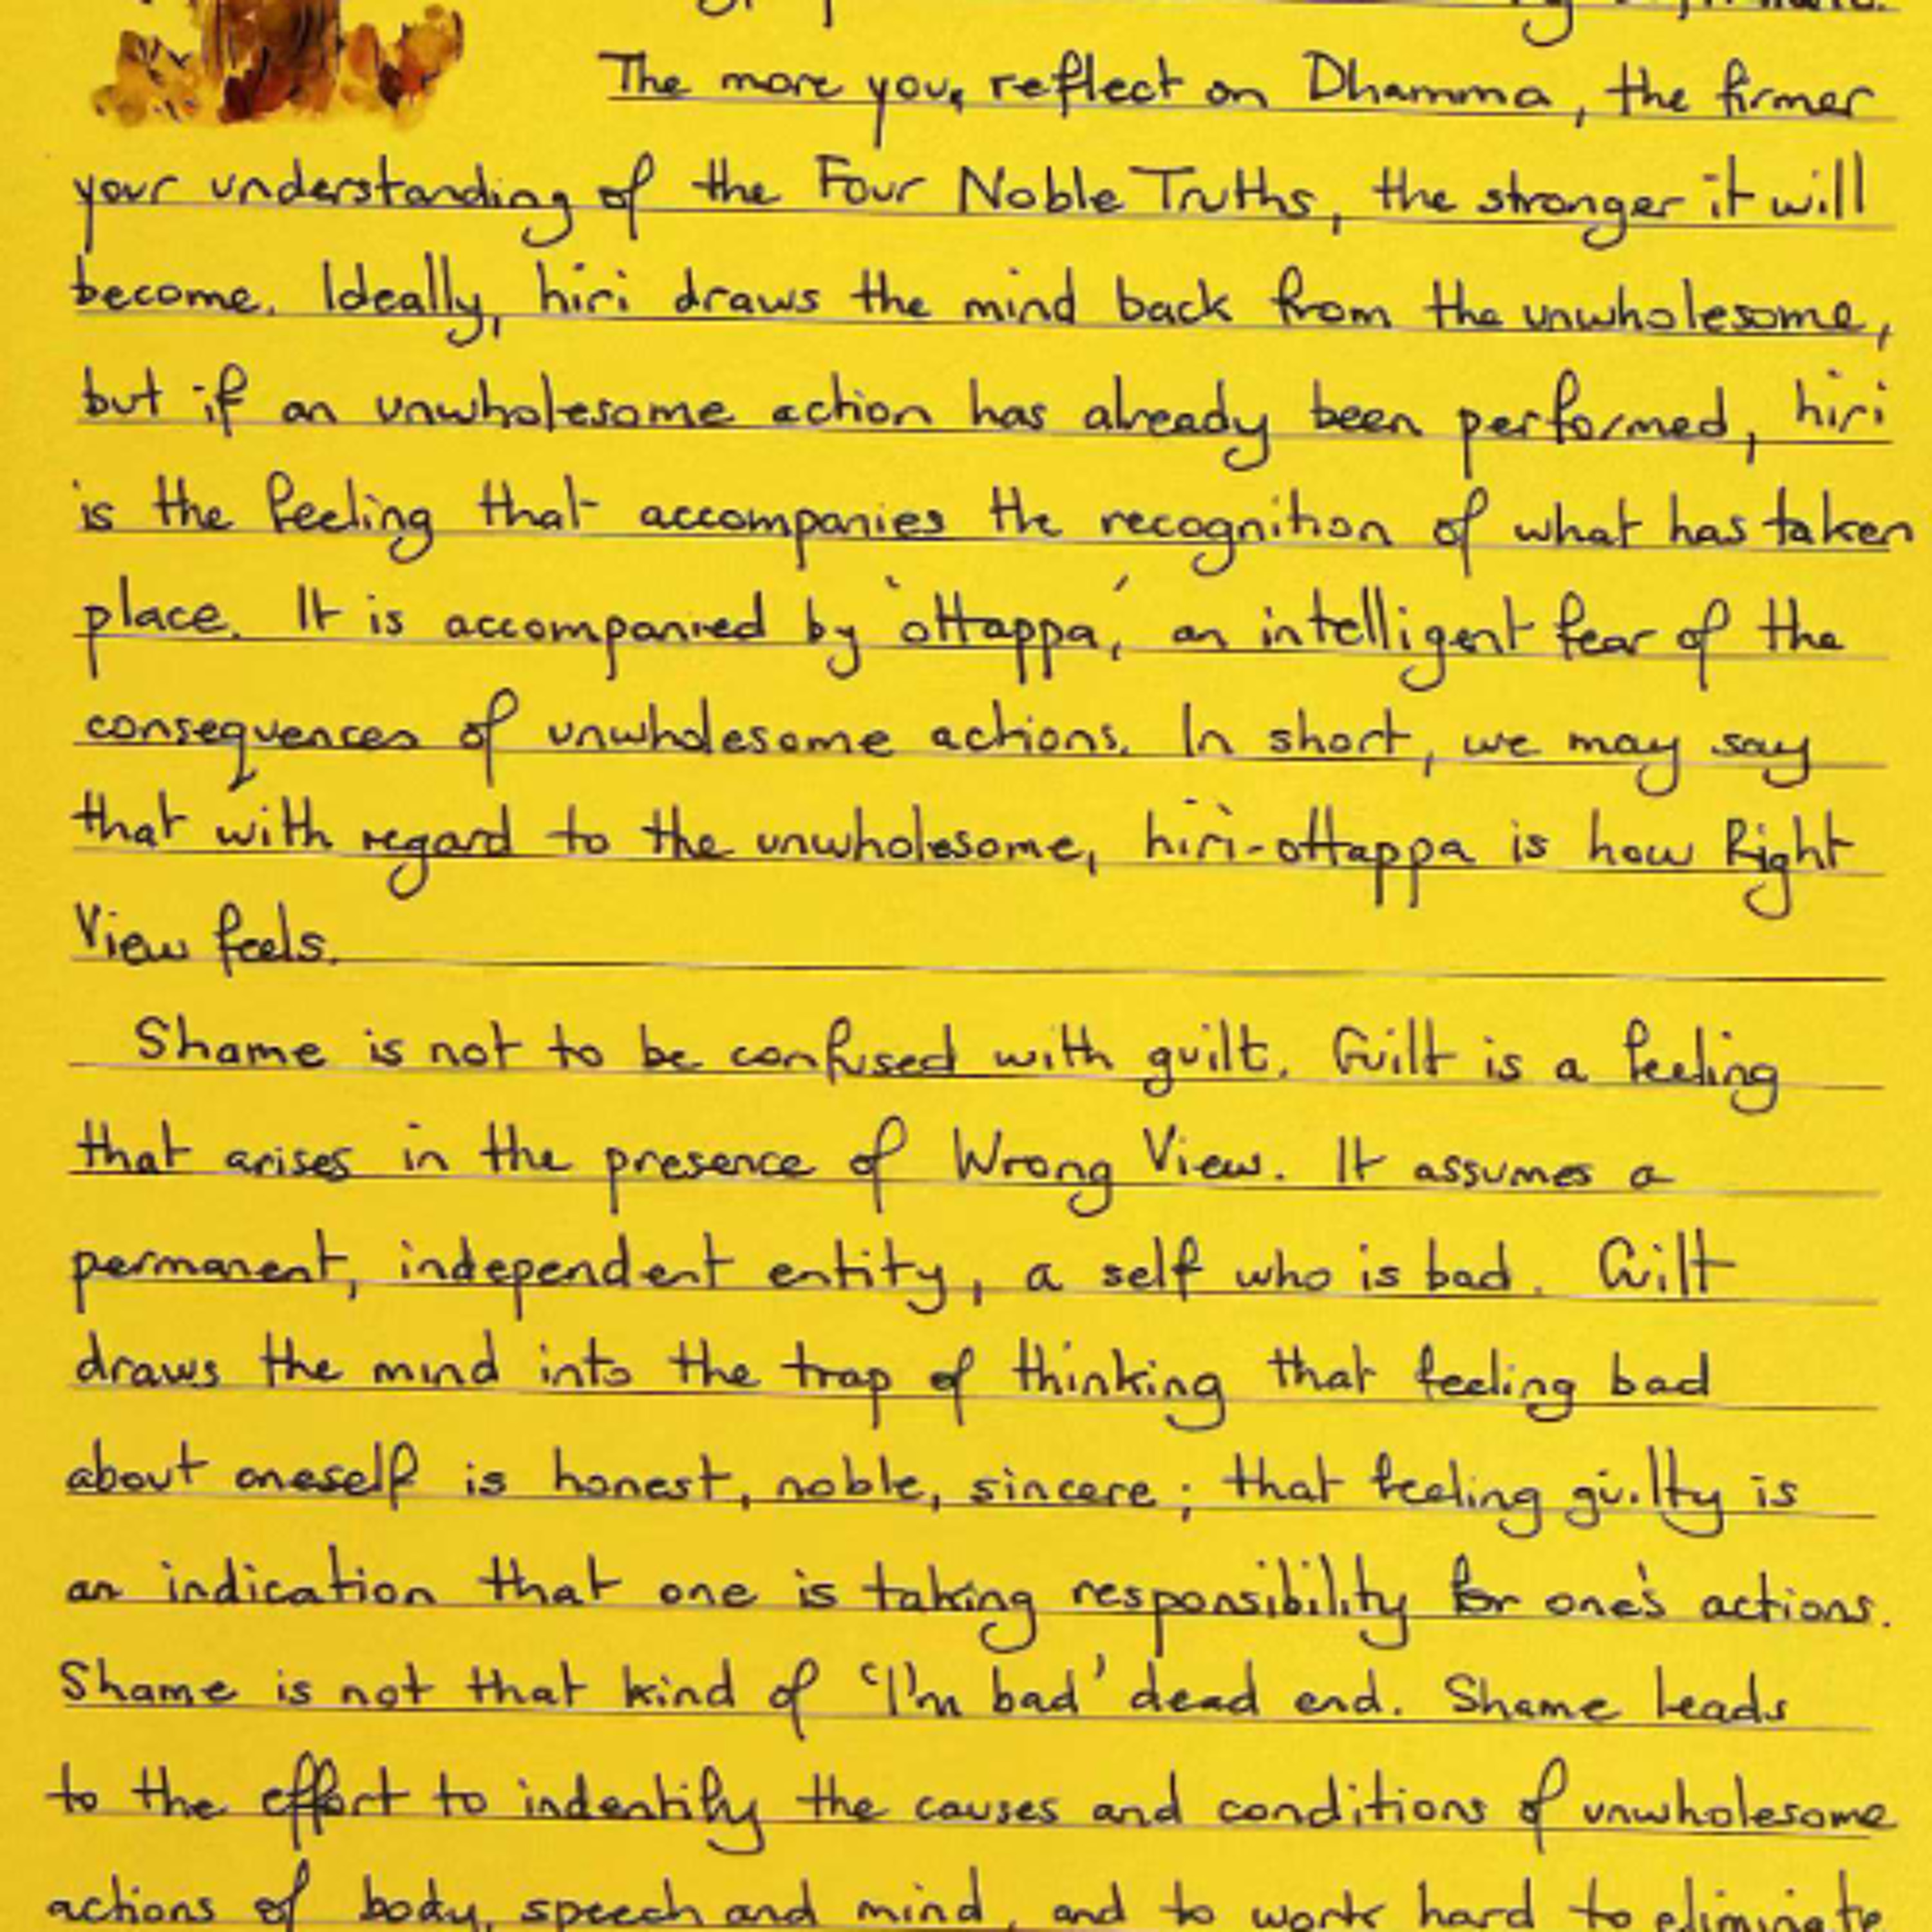 The more you, reflect on Dhamma, the firmer
your understanding of the Four Noble Truths, the stronger it will
become. Ideally, hiri draws the mind back from the unwholesome,
but if an unwholesome action has already been performed, hiri
is the feeling that accompanies the recognition of what has taken
place. It is accompanied by 'ottappa,' an intelligent fear of the
consequences of unwholesome actions. In short, we may say
that with regard to the unwholesome, hiri-ottappa is how Right
View feels.
Shame is not to be confused with guilt. Guilt is a feeling
that arises in the presence of Wrong View. It assumes a
permanent, independent entity, a self who is bad. Guilt
draws the mind into the trap of thinking that feeling bad
about oneself is honest, noble, sincere; that feeling guilty is
an indication that one is taking responsibility for one's actions.
Shame is not that kind of 'I'm bad' dead end. Shame leads
to the effort to indentify the causes and conditions of unwholesome
actions of body, speech and mind, and to work hard to eliminate